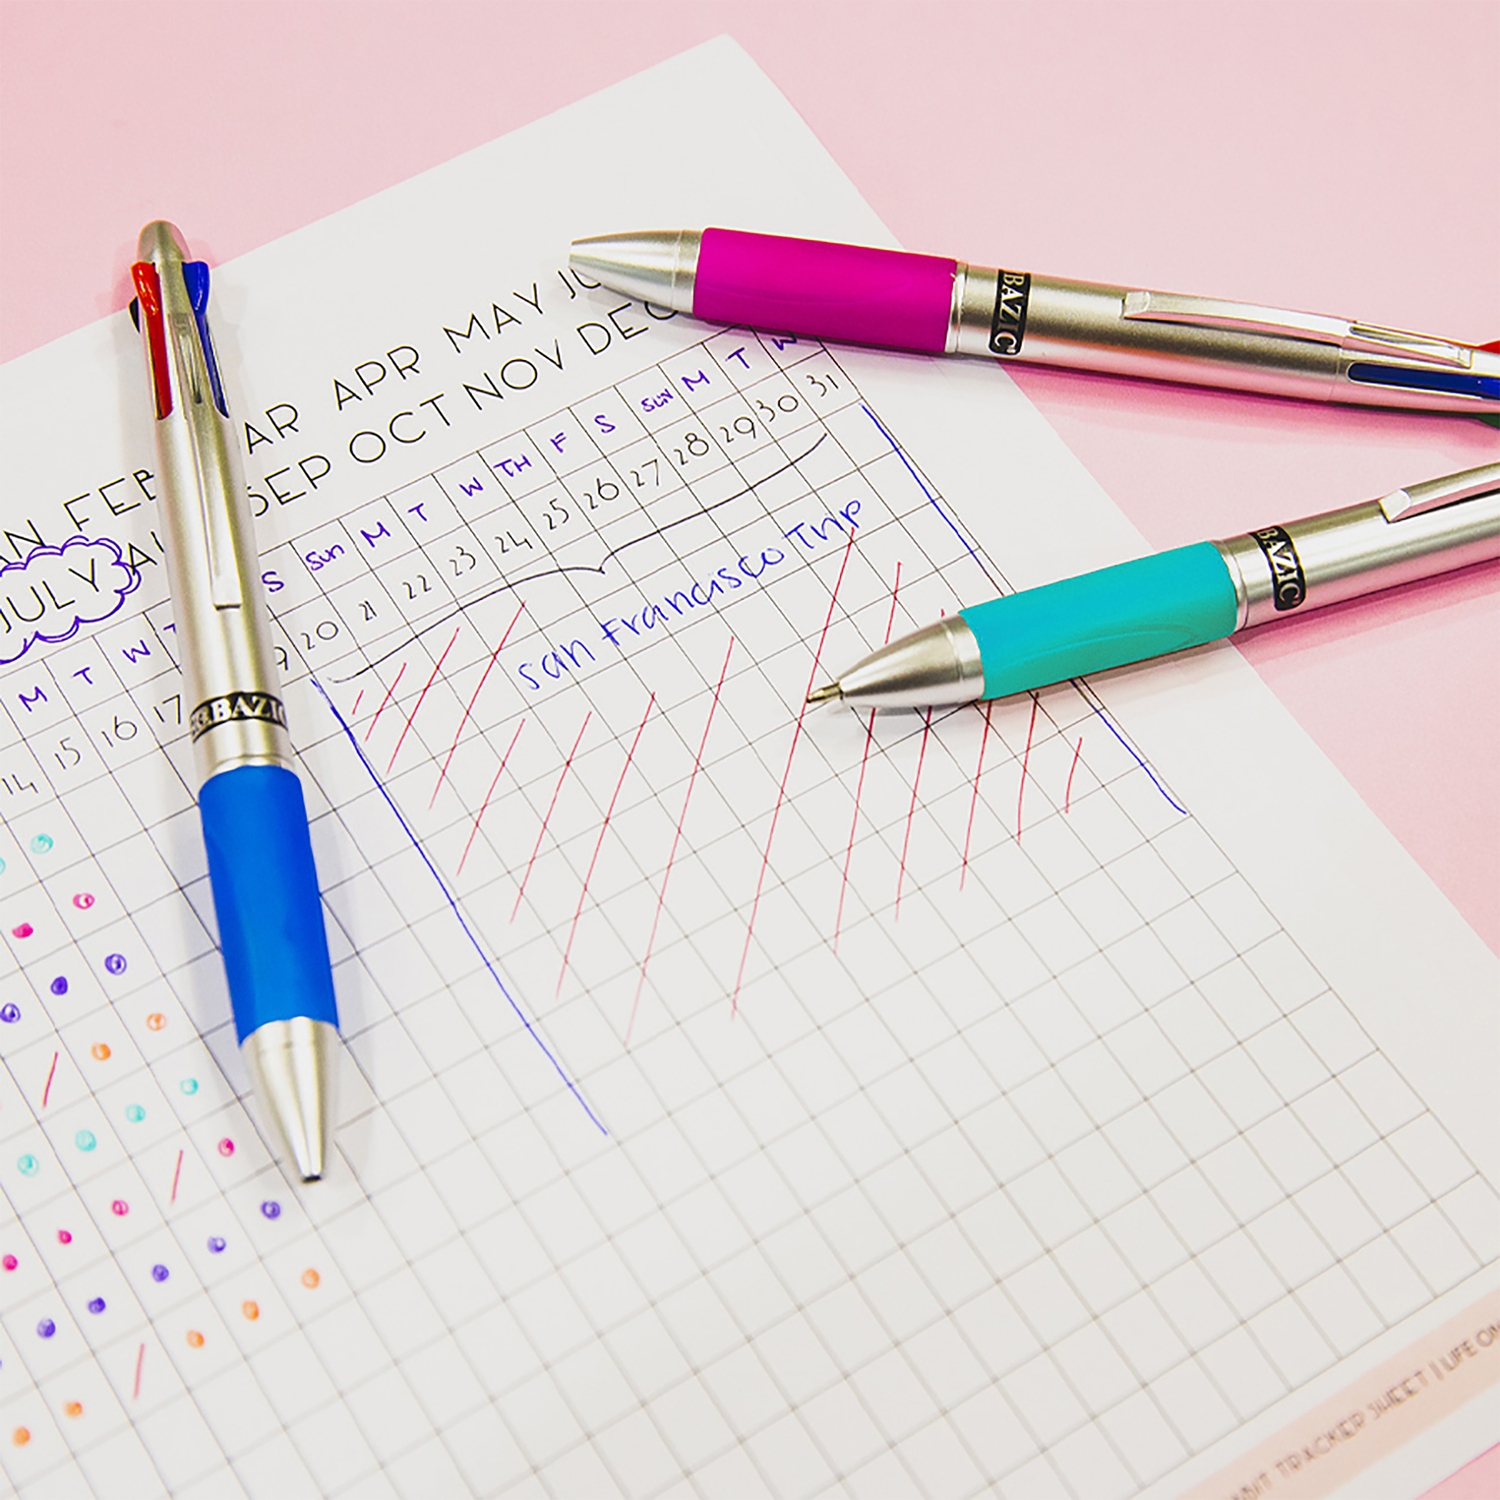 AN FEB AR APR MAY JU
JULY SEP OCT NOV DEC
M T W T S Sun M T W TH F S SUN M T W
14 15 16 17 9 20 21 22 23 24 25 26 27 28 29 30 31
San Francisco Trip
BAZIC
BAZIC
BAZIC
BIT TRACKER SHEET | LIFE ON